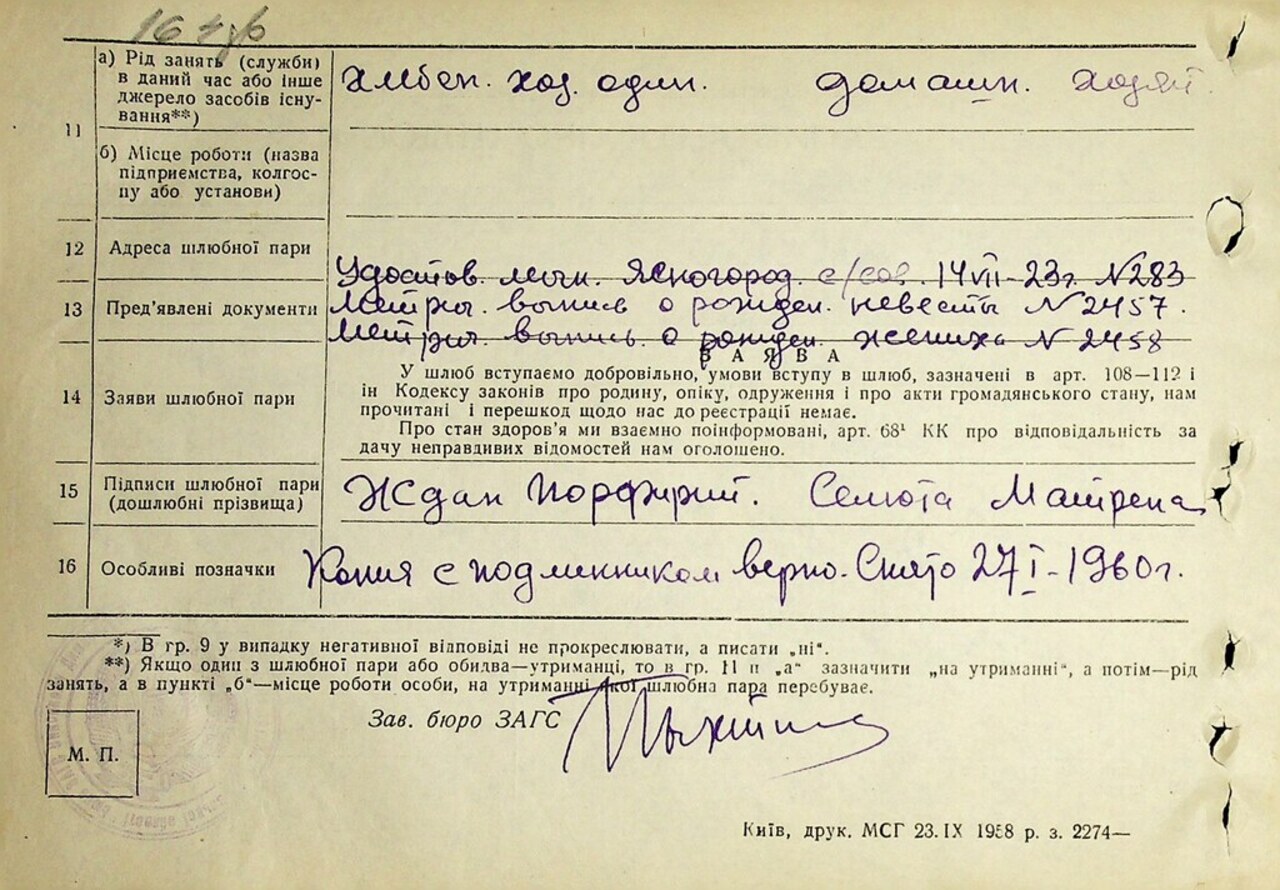 а) Рід занять (служби)
в даний час або інше
джерело засобів існу-
вання**)
хлебоп. хоз. один. домашн. хозяй.
11
б) Місце роботи (назва
підприємства, колгос-
пу або установи)
12 Адреса шлюбної пари
Удостов. личн. Ясногород. с/сов. 14 VII-23г. N283
13 Пред’явлені документи Метрич. выпись о рожден. невесты N 2457.
Метрич. выпись о рожден. жениха N 2458
ЗАЯВА
14 Заяви шлюбної пари
У шлюб вступаємо добровільно, умови вступу в шлюб, зазначені в арт. 108—112 і
ін Кодексу законів про родину, опіку, одруження і про акти громадянського стану, нам
прочитані і перешкод щодо нас до реєстрації немає.
Про стан здоров’я ми взаємно поінформовані, арт. 68¹ КК про відповідальність за
дачу неправдивих відомостей нам оголошено.
15 Підписи шлюбної пари
(дошлюбні прізвища)
Ждан Порфирий. Семота Матрена
16 Особливі позначки Копия с подлинником верно. Снято 27 I-1960г.
*) В гр. 9 у випадку негативної відповіді не прокреслювати, а писати „ні“.
**) Якщо один з шлюбної пари або обидва—утриманці, то в гр. 11 п „а“ зазначити „на утриманні“, а потім—рід
занять, а в пункті „б“—місце роботи особи, на утриманні якої шлюбна пара перебуває.
Зав. бюро ЗАГС
М. П.
Київ, друк. МСГ 23.IX 1958 р. з. 2274—